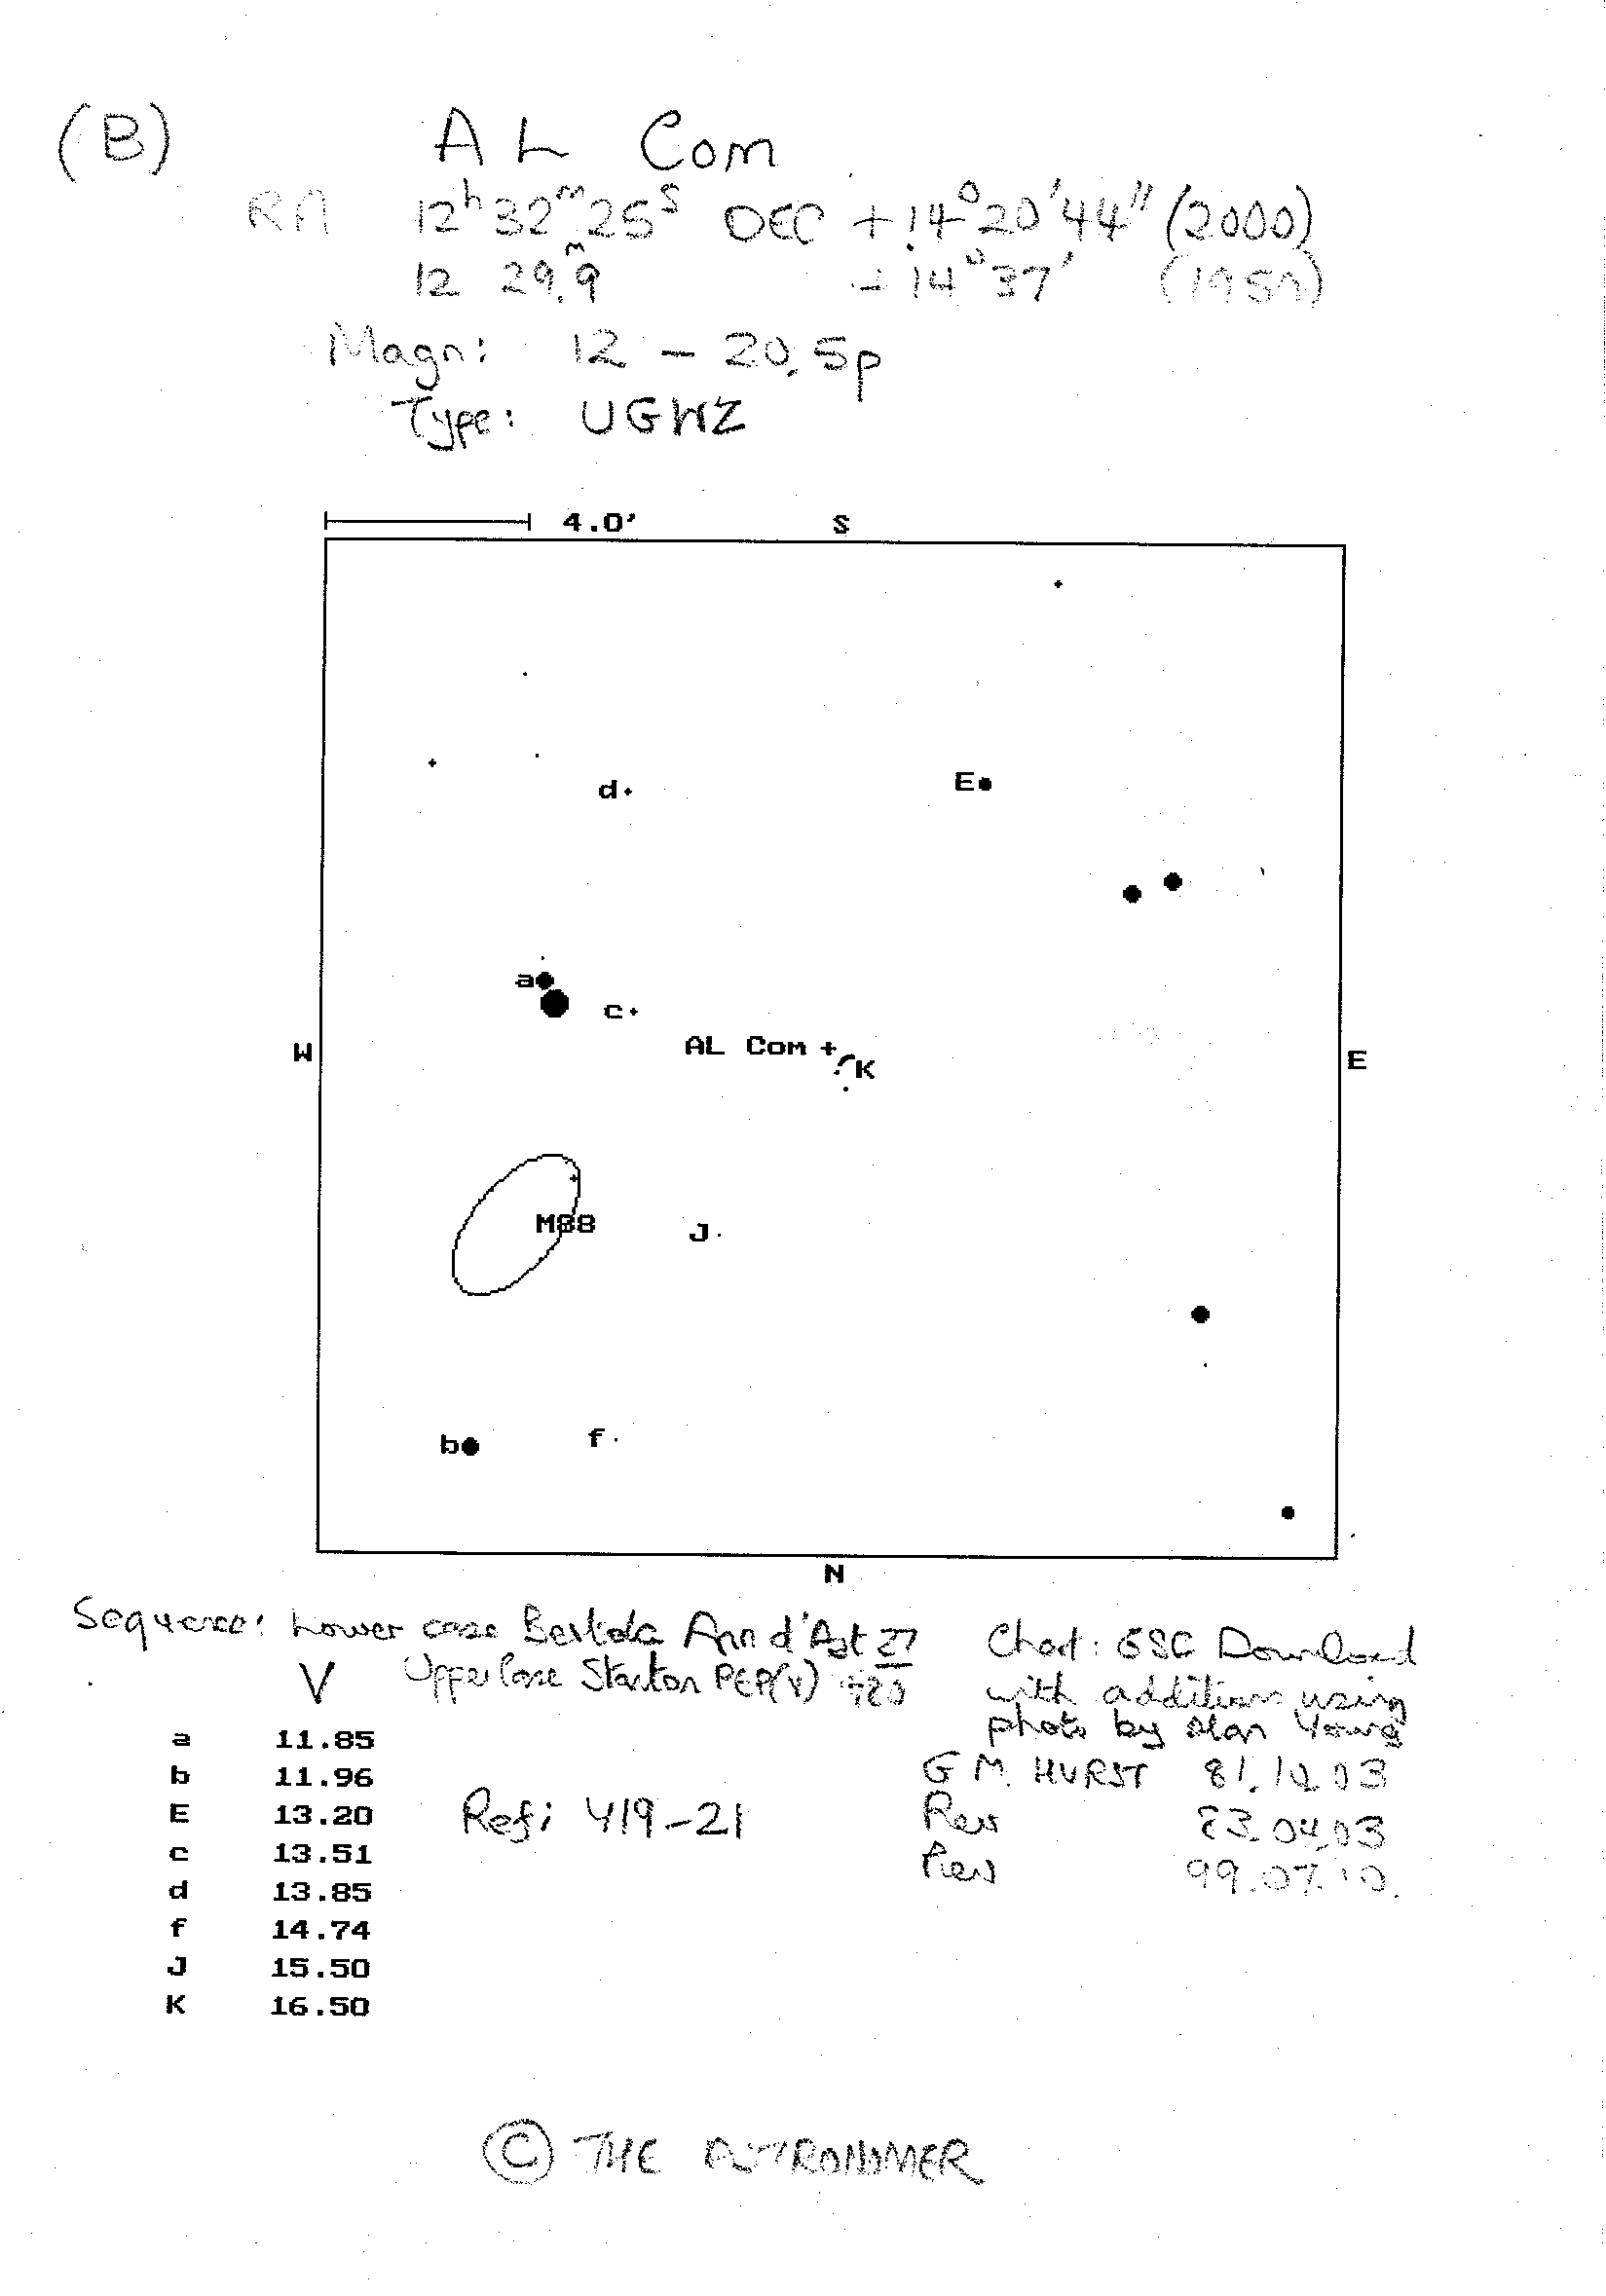 (B) AL Com
RA 12h 32m 25s DEC +14° 20' 44" (2000)
12 29.9m +14° 37' (1950)
Magn: 12 - 20.5p
Type: UGWZ
4.0' S
d E
a
c
AL Com
K
W E
M88
J
b f
N
Sequence: Lower case Bertola Ann d'Ast 27
Upper Case Stanton PEP(V)
V
Chart: GSC Download
with additions using
photo by Alan Young
a 11.85
b 11.96
E 13.20
c 13.51
d 13.85
f 14.74
J 15.50
K 16.50
Ref: 419-21
G M. HURST 81.10.03
Rev 83.04.03
Rev 99.07.10.
© THE ASTRONOMER